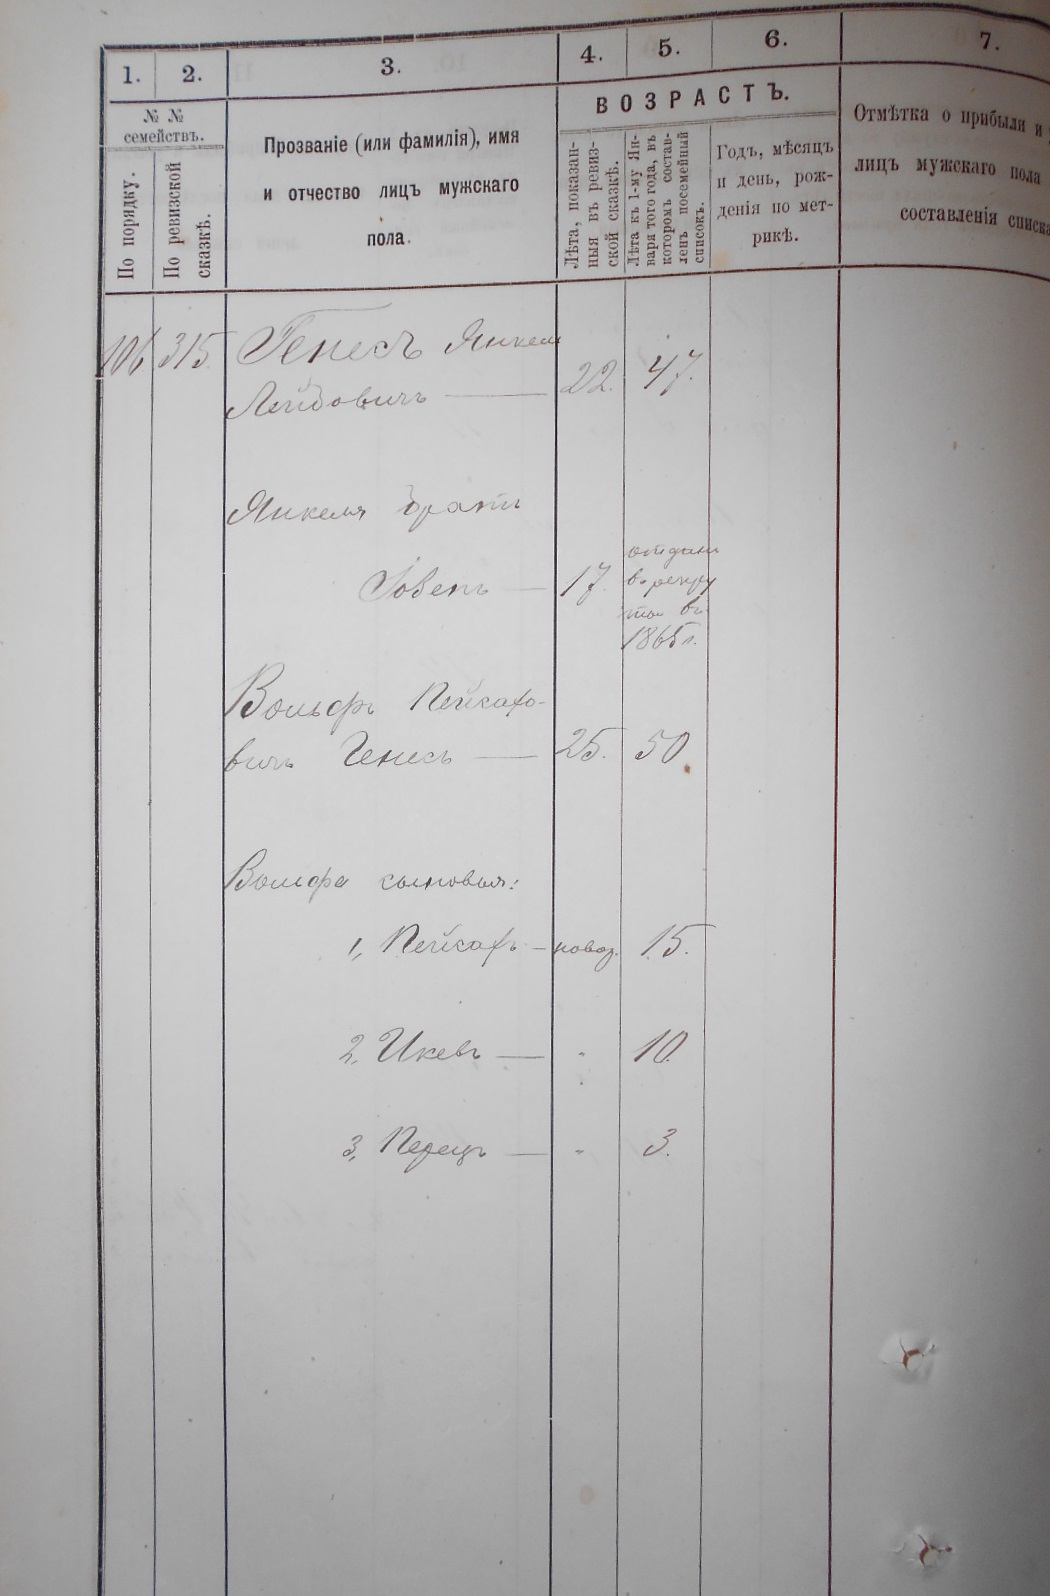 1. 2. 3. 4. 5. 6. 7.
№ №
семействъ.
По порядку.
По ревизской
сказкѣ.
Прозваніе (или фамилія), имя
и отчество лицъ мужскаго
пола.
ВОЗРАСТЪ.
Лѣта, показан-
ныя въ ревиз-
ской сказкѣ.
Лѣта къ 1-му Ян-
варя того года, въ
которомъ состав-
ленъ посемейный
списокъ.
Годъ, мѣсяцъ
и день, рож-
денія по мет-
рикѣ.
Отмѣтка о прибыли и
лицъ мужскаго пола
составленія списка
106 315 Генесъ Янкель
Лейбовичъ — 22. 47.
Янкеля братъ
Іовель — 17. отданъ
въ рекру
ты въ
1865 г.
Вольфъ Пейсахо-
вичъ Генесъ — 25. 50
Вольфа сыновья:
1, Пейсахъ — новор. 15.
2, Ицекъ — " 10.
3, Перецъ — " 3.